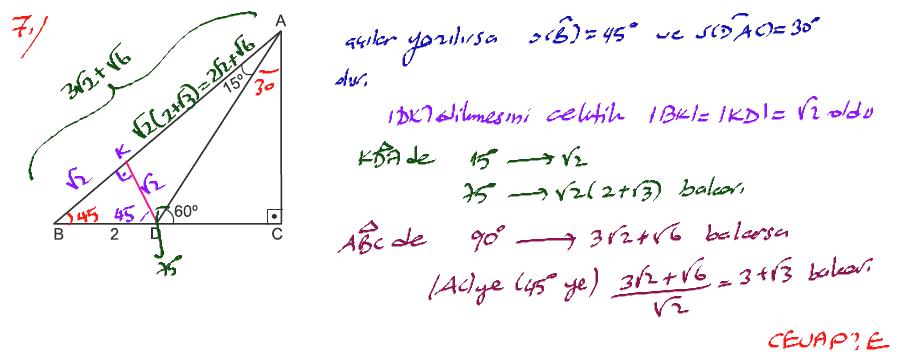 7.)
A
3√2+√6
√2(2+√3)=2√2+√6
15°
30
K
√2
√2
45
45
60°
B
2
D
C
75
açılar yazılırsa s(B̂)=45° ve s(DÂC)=30°
dır.
|DK| dikmesini çekelik |BK|=|KD|=√2 oldu
KDA de 15° → √2
75° → √2(2+√3) bakar.
ABC de 90° → 3√2+√6 bakarsa
|AC| ye (45° ye) 3√2+√6 / √2 = 3+√3 bakar.
CEVAP: E